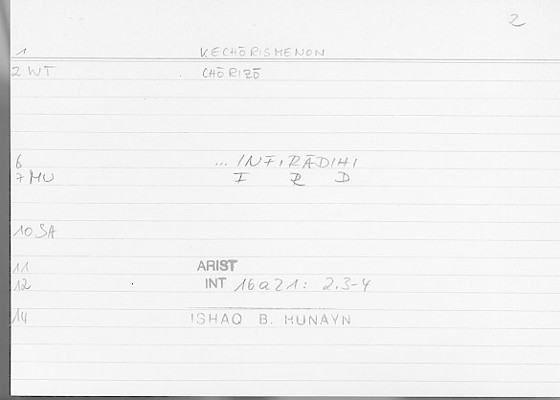 2
1 KECHŌRISMENON
2 WT CHŌRIZŌ
6 ... INFIRĀDIHI
7 MU I R D
10 SA
11 ARIST
12 INT 16a21: 2.3-4
14 ISHAQ B. HUNAYN